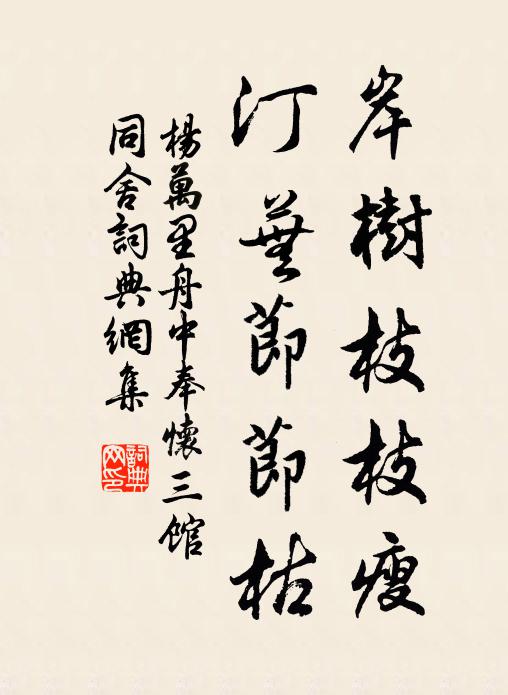 岸樹枝枝瘦
汀蕪節節枯
楊萬里舟中奉懷三館
同舍詞典網集
詞典
网印